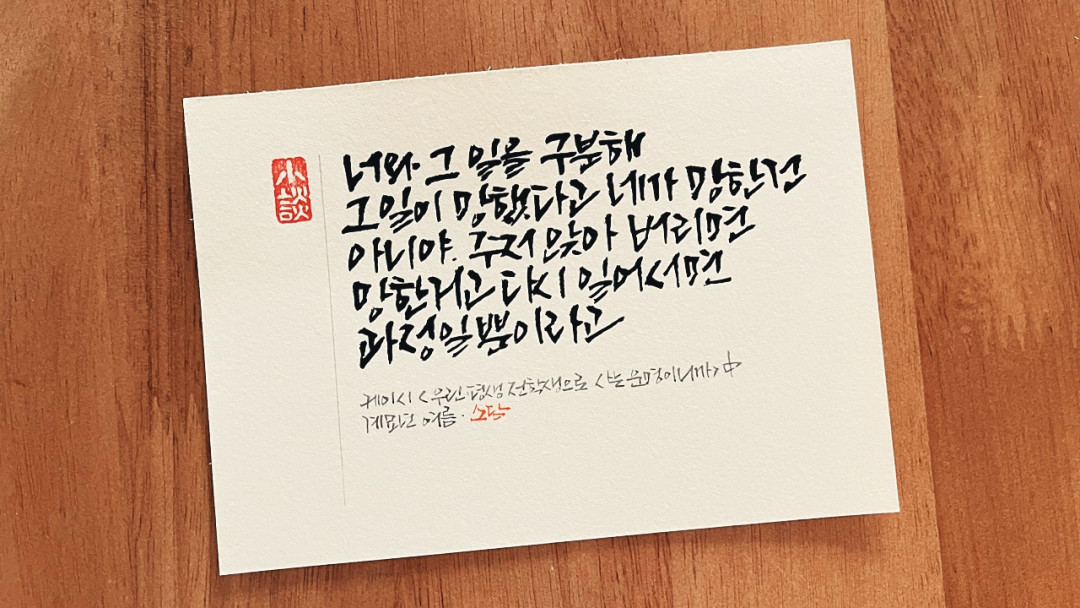 小談
너와 그 일을 구분해
그일이 망했다고 네가 망한건
아니야. 주저 앉아 버리면
망한거고 다시 일어서면
과정일뿐이라고
케이시 <우린 평생 전학생으로 사는 운명이니까> 中
계묘년 여름. 소담